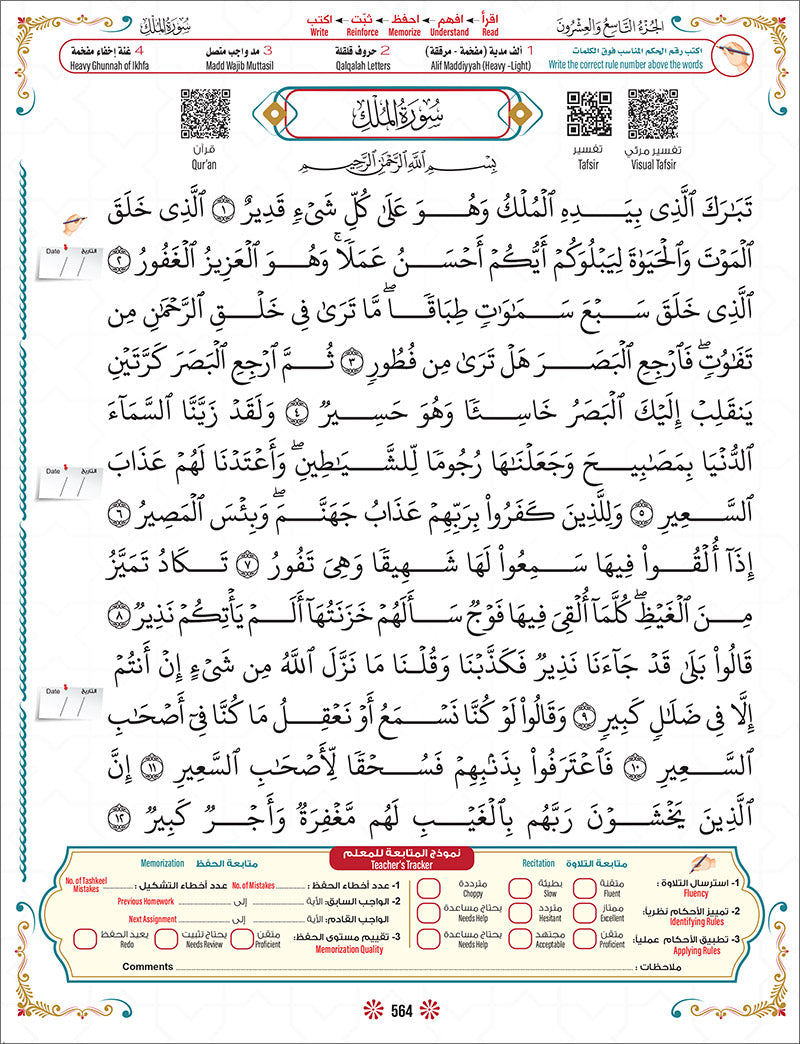 سُورَةُ المُلْكِ
اقرأ ← افهم ← احفظ ← ثبّت ← اكتب
Read Understand Memorize Reinforce Write
الجُزْءُ التَّاسِعُ وَالعِشْرُونَ
اكتب رقم الحكم المناسب فوق الكلمات
Write the correct rule number above the words
1 ألف مدية (مفخمة - مرققة)
Alif Maddiyyah (Heavy -Light)
2 حروف قلقلة
Qalqalah Letters
3 مد واجب متصل
Madd Wajib Muttasil
4 غنة إخفاء مفخمة
Heavy Ghunnah of Ikhfa
تفسير مرئي
Visual Tafsir
تفسير
Tafsir
سُورَةُ المُلْكِ
قرآن
Qur'an
بِسْمِ ٱللَّهِ ٱلرَّحْمَٰنِ ٱلرَّحِيمِ
تَبَٰرَكَ ٱلَّذِى بِيَدِهِ ٱلْمُلْكُ وَهُوَ عَلَىٰ كُلِّ شَىْءٍ قَدِيرٌ ١ ٱلَّذِى خَلَقَ
ٱلْمَوْتَ وَٱلْحَيَوٰةَ لِيَبْلُوَكُمْ أَيُّكُمْ أَحْسَنُ عَمَلًا ۚ وَهُوَ ٱلْعَزِيزُ ٱلْغَفُورُ ٢
ٱلَّذِى خَلَقَ سَبْعَ سَمَٰوَٰتٍ طِبَاقًا ۖ مَّا تَرَىٰ فِى خَلْقِ ٱلرَّحْمَٰنِ مِن
تَفَٰوُتٍ ۖ فَٱرْجِعِ ٱلْبَصَرَ هَلْ تَرَىٰ مِن فُطُورٍ ٣ ثُمَّ ٱرْجِعِ ٱلْبَصَرَ كَرَّتَيْنِ
يَنقَلِبْ إِلَيْكَ ٱلْبَصَرُ خَاسِئًا وَهُوَ حَسِيرٌ ٤ وَلَقَدْ زَيَّنَّا ٱلسَّمَآءَ
ٱلدُّنْيَا بِمَصَٰبِيحَ وَجَعَلْنَٰهَا رُجُومًا لِّلشَّيَٰطِينِ ۖ وَأَعْتَدْنَا لَهُمْ عَذَابَ
ٱلسَّعِيرِ ٥ وَلِلَّذِينَ كَفَرُوا۟ بِرَبِّهِمْ عَذَابُ جَهَنَّمَ ۖ وَبِئْسَ ٱلْمَصِيرُ ٦
إِذَآ أُلْقُوا۟ فِيهَا سَمِعُوا۟ لَهَا شَهِيقًا وَهِىَ تَفُورُ ٧ تَكَادُ تَمَيَّزُ
مِنَ ٱلْغَيْظِ ۖ كُلَّمَآ أُلْقِىَ فِيهَا فَوْجٌ سَأَلَهُمْ خَزَنَتُهَآ أَلَمْ يَأْتِكُمْ نَذِيرٌ ٨
قَالُوا۟ بَلَىٰ قَدْ جَآءَنَا نَذِيرٌ فَكَذَّبْنَا وَقُلْنَا مَا نَزَّلَ ٱللَّهُ مِن شَىْءٍ إِنْ أَنتُمْ
إِلَّا فِى ضَلَٰلٍ كَبِيرٍ ٩ وَقَالُوا۟ لَوْ كُنَّا نَسْمَعُ أَوْ نَعْقِلُ مَا كُنَّا فِىٓ أَصْحَٰبِ
ٱلسَّعِيرِ ١٠ فَٱعْتَرَفُوا۟ بِذَنۢبِهِمْ فَسُحْقًا لِّأَصْحَٰبِ ٱلسَّعِيرِ ١١ إِنَّ
ٱلَّذِينَ يَخْشَوْنَ رَبَّهُم بِٱلْغَيْبِ لَهُم مَّغْفِرَةٌ وَأَجْرٌ كَبِيرٌ ١٢
التاريخ Date / /
التاريخ Date / /
التاريخ Date / /
نموذج المتابعة للمعلم
Teacher's Tracker
متابعة التلاوة Recitation
1- استرسال التلاوة :
Fluency
متقنة Fluent
بطيئة Slow
مترددة Choppy
2- تمييز الأحكام نظرياً:
Identifying Rules
ممتاز Excellent
متردد Hesitant
يحتاج مساعدة Needs Help
3- تطبيق الأحكام عملياً:
Applying Rules
متقن Proficient
مجتهد Acceptable
يحتاج مساعدة Needs Help
متابعة الحفظ Memorization
1- عدد أخطاء الحفظ : No. of Mistakes
عدد أخطاء التشكيل : No. of Tashkeel Mistakes
2- الواجب السابق: الآية إلى Previous Homework
الواجب القادم: الآية إلى Next Assignment
3- تقييم مستوى الحفظ:
Memorization Quality
متقن Proficient
يحتاج تثبيت Needs Review
يعيد الحفظ Redo
ملاحظات : Comments
564